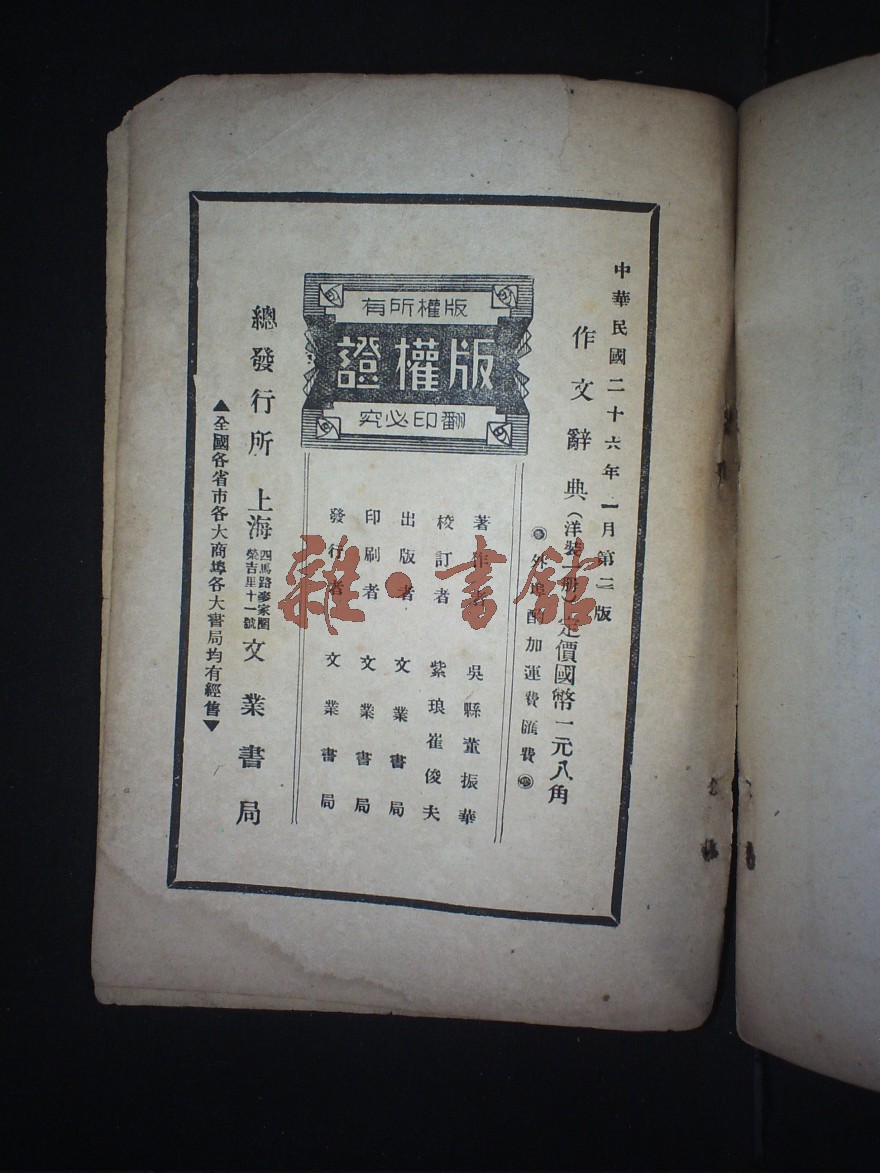 中華民國二十六年一月第二版
作文辭典（洋裝一册）定價國幣一元八角
外埠酌加運費匯費
版權所有
版權證
翻印必究
著作者 吳縣董振華
校訂者 紫琅崔俊夫
出版者 文業書局
印刷者 文業書局
發行者 文業書局
總發行所 上海 四馬路麥家圈 榮吉里十一號 文業書局
▲全國各省市各大商埠各大書局均有經售▼
雜·書館